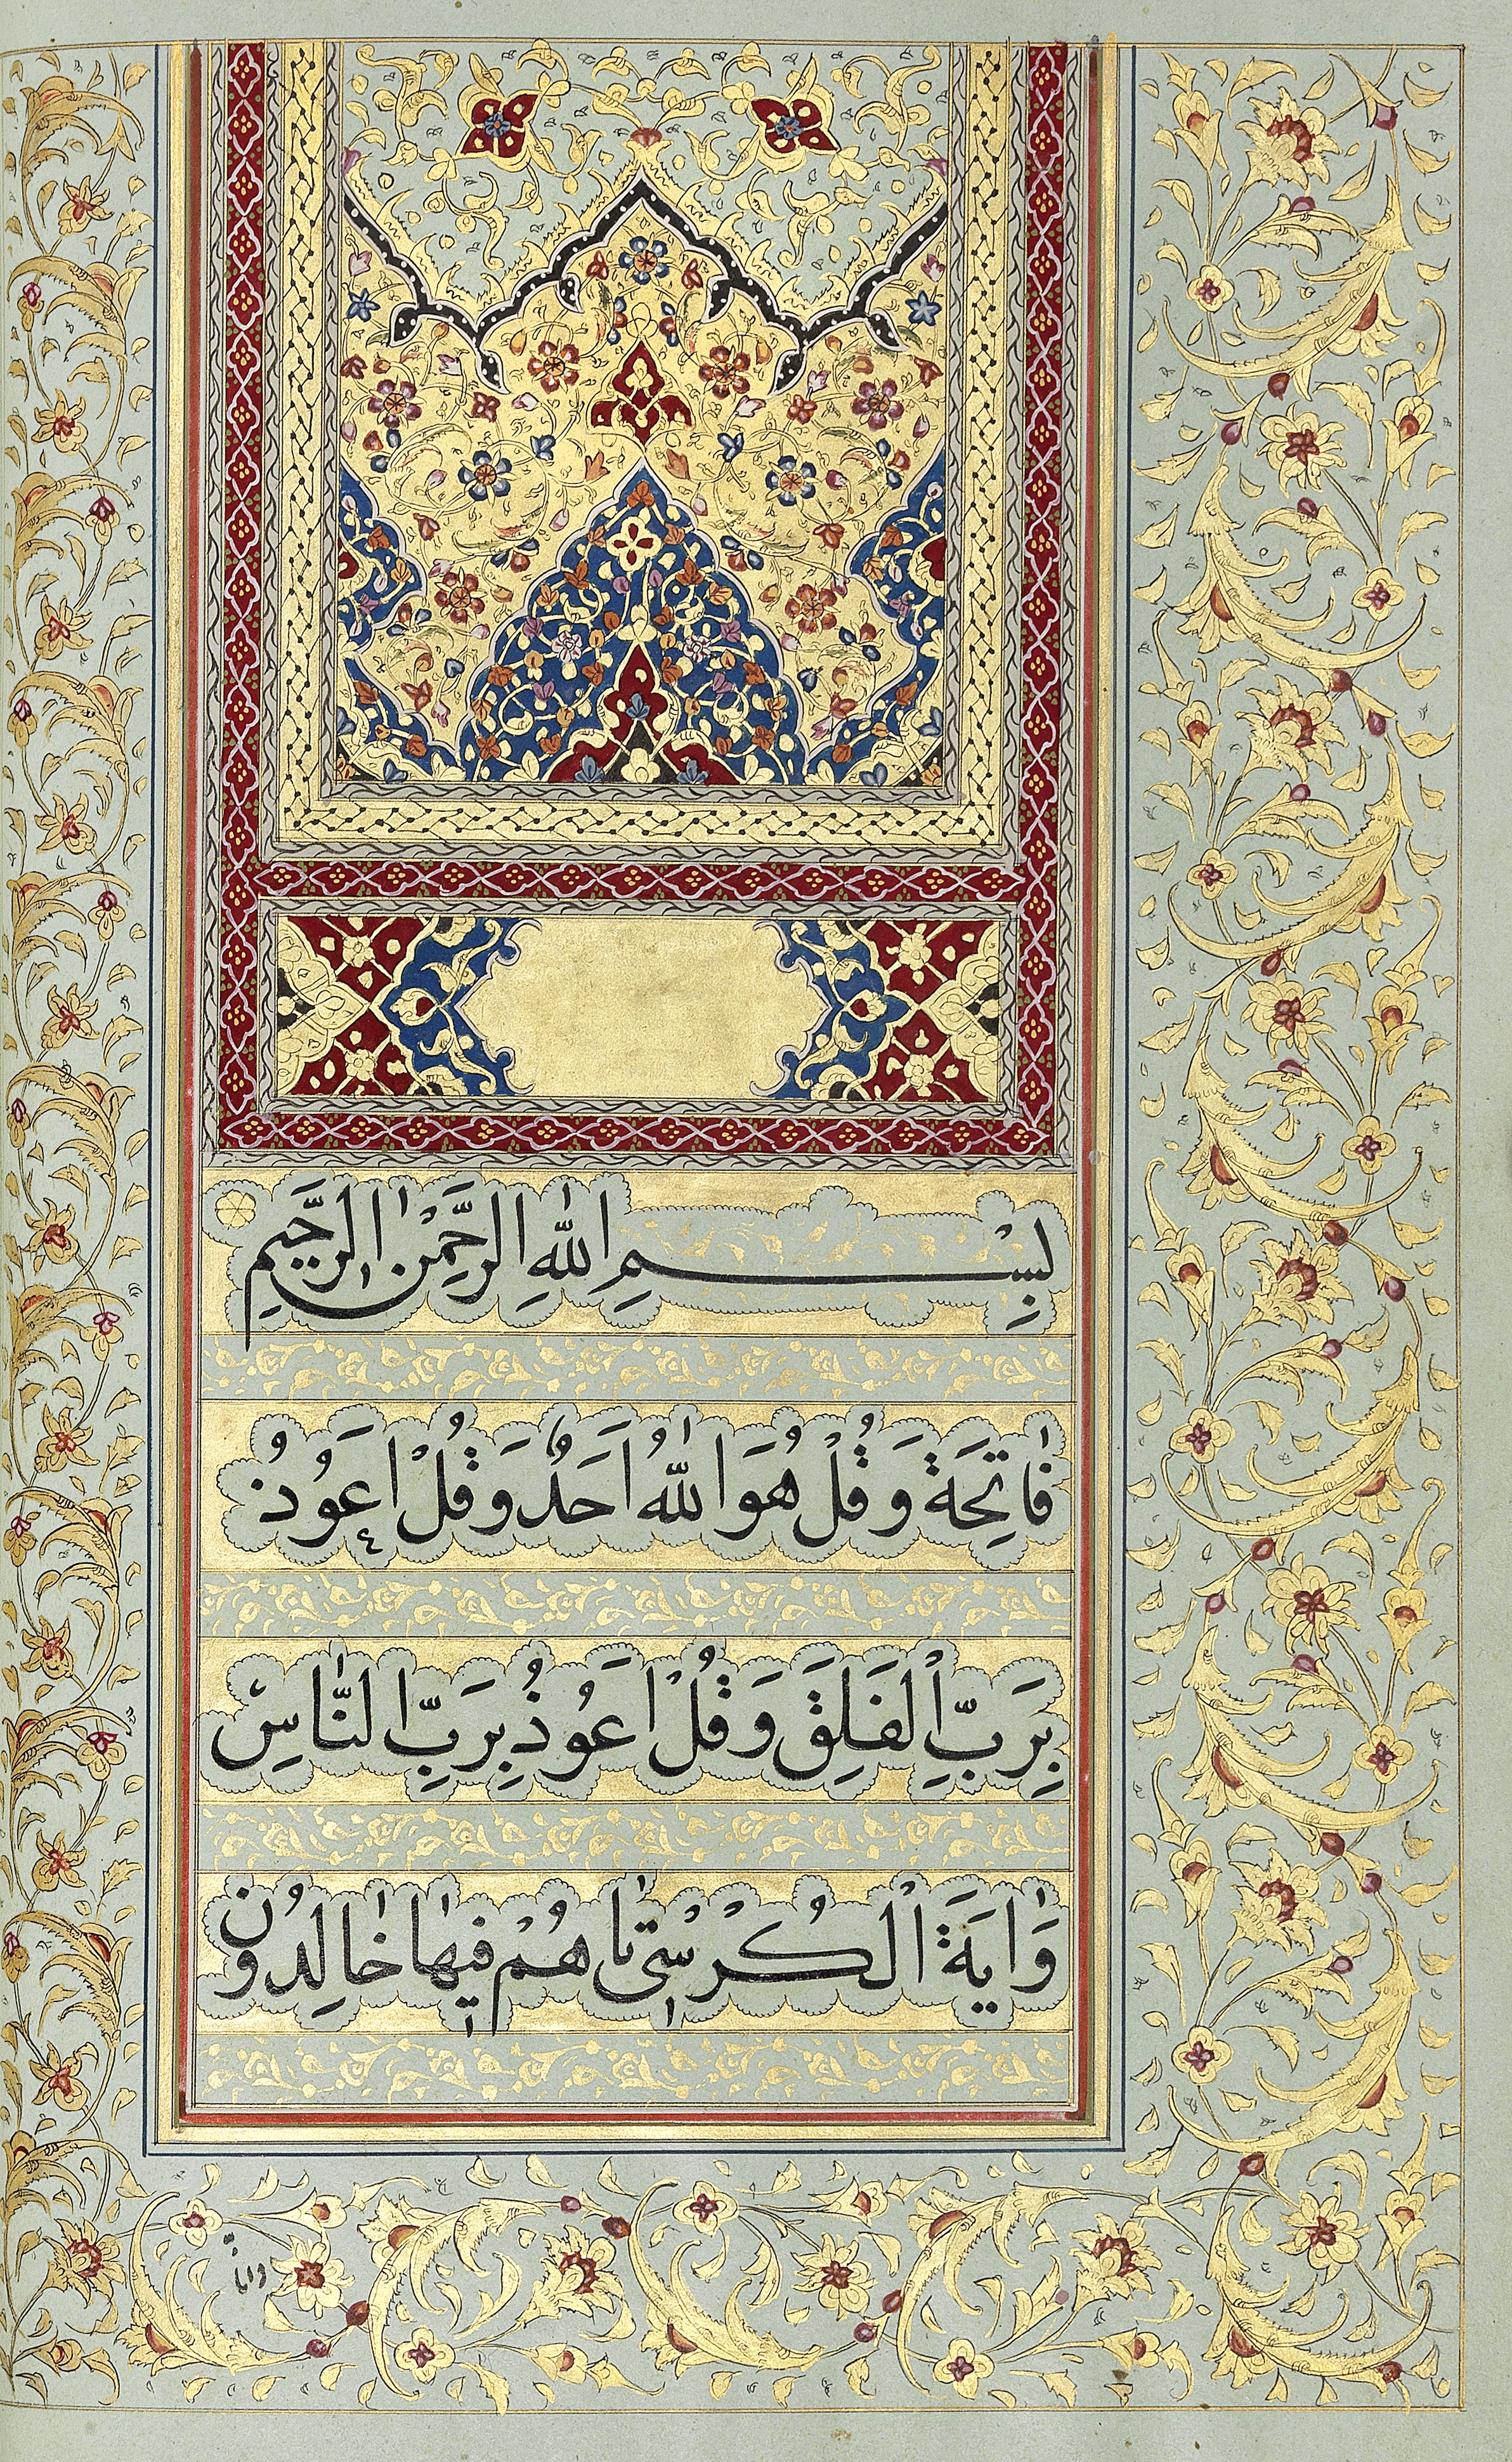 بِسْمِ اللّٰهِ الرَّحْمٰنِ الرَّحِيمِ
فٰاتِحَة وَ قُلْ هُوَ اللّٰهُ اَحَدٌ وَ قُلْ اَعُوذُ
بِرَبِّ الْفَلَقِ وَ قُلْ اَعُوذُ بِرَبِّ النّٰاسِ
وَ اٰيَةَ الْكُرْسْى تٰا هُمْ فيٖهٰا خٰالِدُونَ
وانا